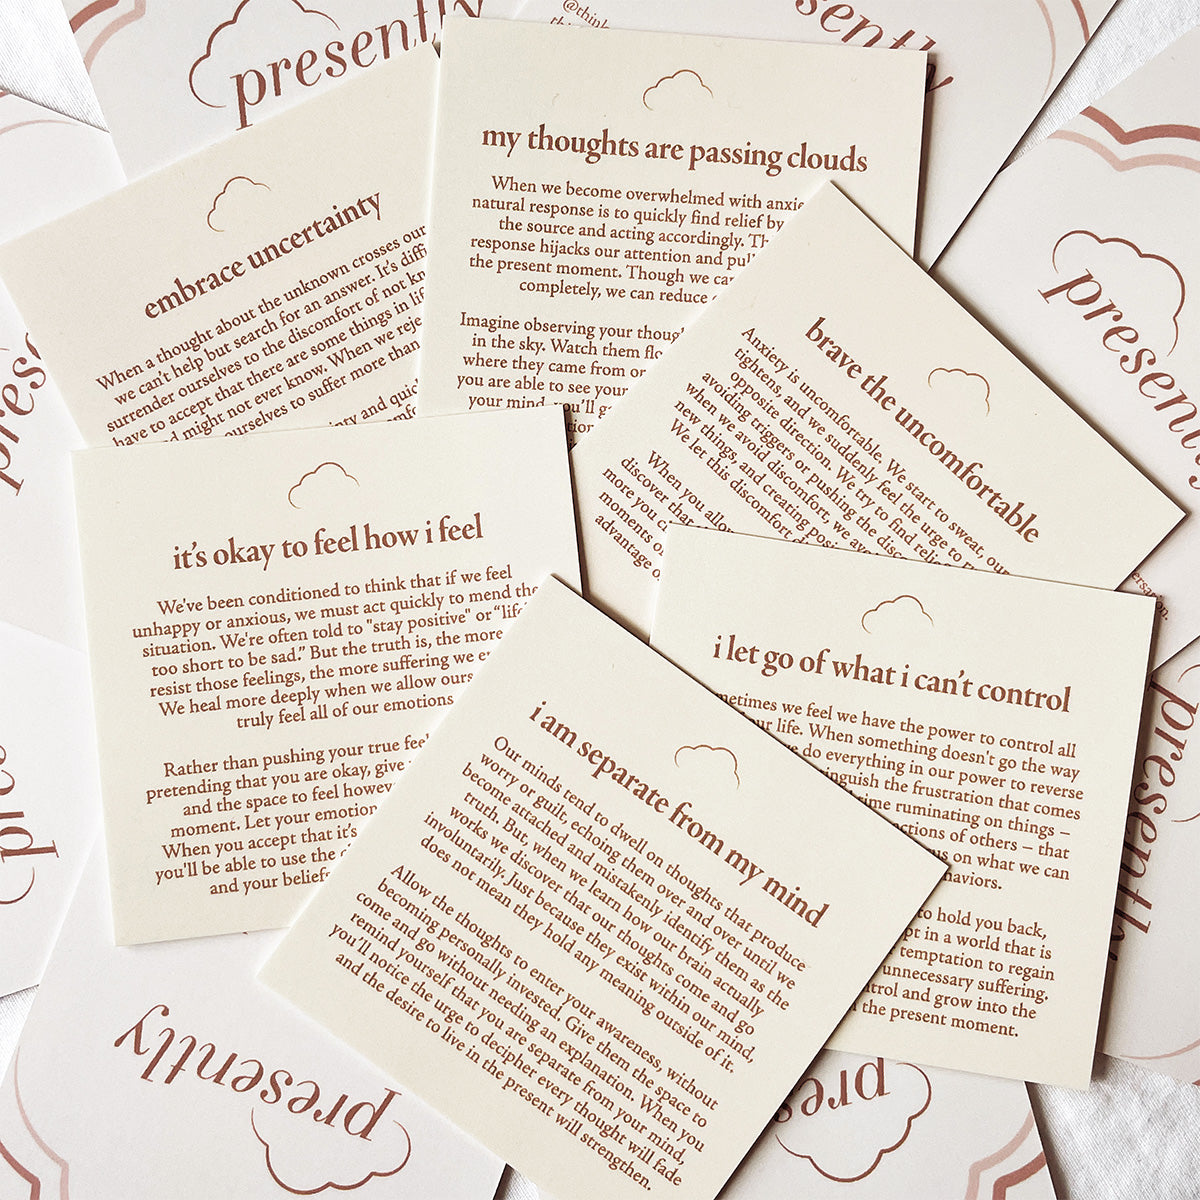 presently
@think
presently
embrace uncertainty
When a thought about the unknown crosses our
we can't help but search for an answer. It's diffi
surrender ourselves to the discomfort of not kn
have to accept that there are some things in life
might not ever know. When we reje
ourselves to suffer more than
and quic
my thoughts are passing clouds
When we become overwhelmed with anxie
natural response is to quickly find relief by
the source and acting accordingly. Th
response hijacks our attention and pul
the present moment. Though we can
completely, we can reduce
Imagine observing your though
in the sky. Watch them flo
where they came from or
you are able to see your
your mind, you'll g
brave the uncomfortable
Anxiety is uncomfortable. We start to sweat, our
tightens, and we suddenly feel the urge to r
opposite direction. We try to find relie
avoiding triggers or pushing the disc
when we avoid discomfort, we avo
new things, and creating posi
We let this discomfort d
When you allow
discover that
more you c
moments o
advantage o
presently
it's okay to feel how i feel
We've been conditioned to think that if we feel
unhappy or anxious, we must act quickly to mend the
situation. We're often told to "stay positive" or "life
too short to be sad." But the truth is, the more
resist those feelings, the more suffering we en
We heal more deeply when we allow ours
truly feel all of our emotions
Rather than pushing your true feel
pretending that you are okay, give
and the space to feel howev
moment. Let your emotion
When you accept that it's
you'll be able to use the
and your beliefs
i am separate from my mind
Our minds tend to dwell on thoughts that produce
worry or guilt, echoing them over and over until we
become attached and mistakenly identify them as the
truth. But, when we learn how our brain actually
works we discover that our thoughts come and go
involuntarily. Just because they exist within our mind,
does not mean they hold any meaning outside of it.
Allow the thoughts to enter your awareness, without
becoming personally invested. Give them the space to
come and go without needing an explanation. When you
remind yourself that you are separate from your mind,
you'll notice the urge to decipher every thought will fade
and the desire to live in the present will strengthen.
i let go of what i can't control
metimes we feel we have the power to control all
our life. When something doesn't go the way
we do everything in our power to reverse
inguish the frustration that comes
time ruminating on things –
ctions of others – that
us on what we can
haviors.
to hold you back,
pt in a world that is
temptation to regain
unnecessary suffering.
trol and grow into the
the present moment.
presently
presently
presently